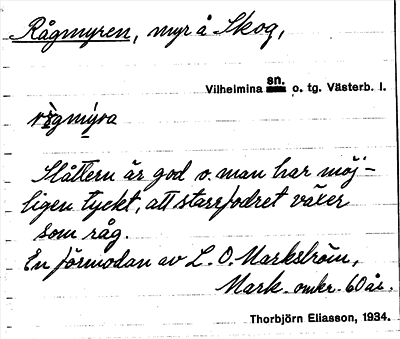 Rågmyren, myr å Skog,
Vilhelmina sn. o. tg. Västerb. l.
Slåttern är god o. man har möj-
ligen tyckt, att starrfodret växer
som råg.
En förmodan av L. O. Markström,
Mark. omkr. 60 år.
Thorbjörn Eliasson, 1934.